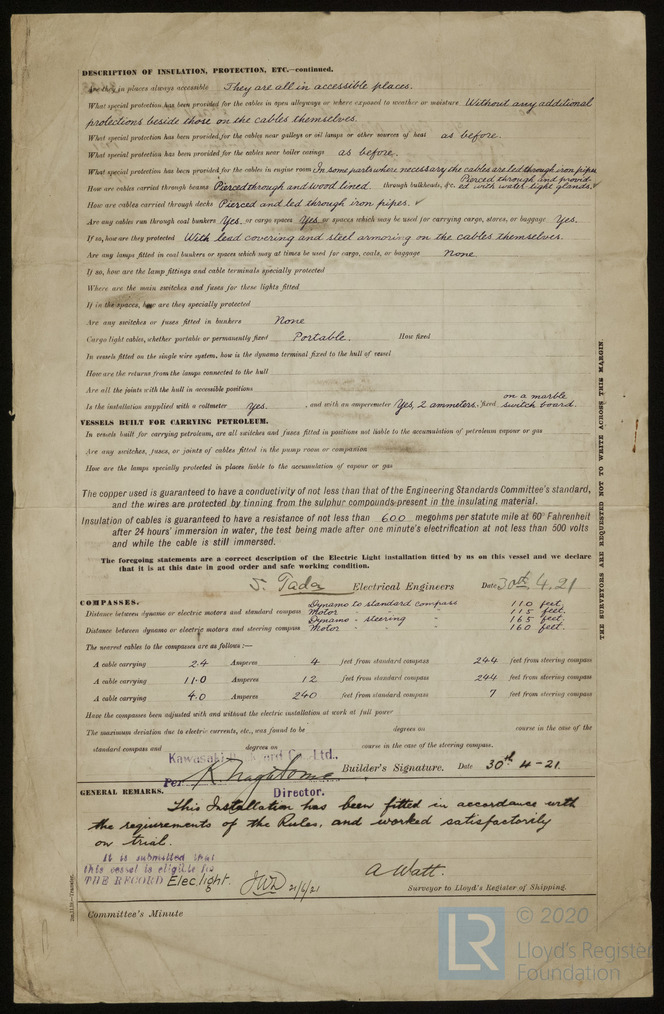 DESCRIPTION OF INSULATION, PROTECTION, ETC.—continued.
Are they in places always accessible They are all in accessible places.
What special protection has been provided for the cables in open alleyways or where exposed to weather or moisture Without any additional
protections beside those on the cables themselves.
What special protection has been provided for the cables near galleys or oil lamps or other sources of heat as before.
What special protection has been provided for the cables near boiler casings as before.
What special protection has been provided for the cables in engine room In some parts where necessary the cables are led through iron pipe
How are cables carried through beams Pierced through and wood lined. through bulkheads, &c. Pierced through and provid
ed with water tight glands. ✓
How are cables carried through decks Pierced and led through iron pipes. ✓
Are any cables run through coal bunkers Yes. or cargo spaces Yes. or spaces which may be used for carrying cargo, stores, or baggage Yes.
If so, how are they protected With lead covering and steel armoring on the cables themselves.
Are any lamps fitted in coal bunkers or spaces which may at times be used for cargo, coals, or baggage None
If so, how are the lamp fittings and cable terminals specially protected
Where are the main switches and fuses for these lights fitted
If in the spaces, how are they specially protected
Are any switches or fuses fitted in bunkers None
Cargo light cables, whether portable or permanently fixed Portable. How fixed
In vessels fitted on the single wire system, how is the dynamo terminal fixed to the hull of vessel
How are the returns from the lamps connected to the hull
Are all the joints with the hull in accessible positions
Is the installation supplied with a voltmeter Yes. , and with an amperemeter Yes, 2 ammeters. fixed on a marble
switch board.
VESSELS BUILT FOR CARRYING PETROLEUM.
In vessels built for carrying petroleum, are all switches and fuses fitted in positions not liable to the accumulation of petroleum vapour or gas
Are any switches, fuses, or joints of cables fitted in the pump room or companion
How are the lamps specially protected in places liable to the accumulation of vapour or gas
The copper used is guaranteed to have a conductivity of not less than that of the Engineering Standards Committee's standard,
and the wires are protected by tinning from the sulphur compounds present in the insulating material.
Insulation of cables is guaranteed to have a resistance of not less than 600 megohms per statute mile at 60° Fahrenheit
after 24 hours' immersion in water, the test being made after one minute's electrification at not less than 500 volts
and while the cable is still immersed.
The foregoing statements are a correct description of the Electric Light installation fitted by us on this vessel and we declare
that it is at this date in good order and safe working condition.
Electrical Engineers Date 30th 4. 21
COMPASSES.
Distance between dynamo or electric motors and standard compass Dynamo to standard compass 110 feet.
Motor " " " 115 feet.
Distance between dynamo or electric motors and steering compass Dynamo - steering " 165 feet.
Motor - " " 160 feet.
The nearest cables to the compasses are as follows:—
A cable carrying 2.4 Amperes 4 feet from standard compass 244 feet from steering compass
A cable carrying 11.0 Amperes 12 feet from standard compass 244 feet from steering compass
A cable carrying 4.0 Amperes 240 feet from standard compass 7 feet from steering compass
Have the compasses been adjusted with and without the electric installation at work at full power
The maximum deviation due to electric currents, etc., was found to be degrees on course in the case of the
standard compass and degrees on course in the case of the steering compass.
Kawasaki Dockyard Co., Ltd.,
Per Builder's Signature. Date 30th 4-21.
Director.
GENERAL REMARKS.
This Installation has been fitted in accordance with
the requirements of the Rules, and worked satisfactorily
on trial.
It is submitted that
this vessel is eligible for
THE RECORD Elec light. JWD 21/6/21
A Watt.
Surveyor to Lloyd's Register of Shipping.
Committee's Minute
THE SURVEYORS ARE REQUESTED NOT TO WRITE ACROSS THIS MARGIN.
LR
© 2020
Lloyd's Register
Foundation